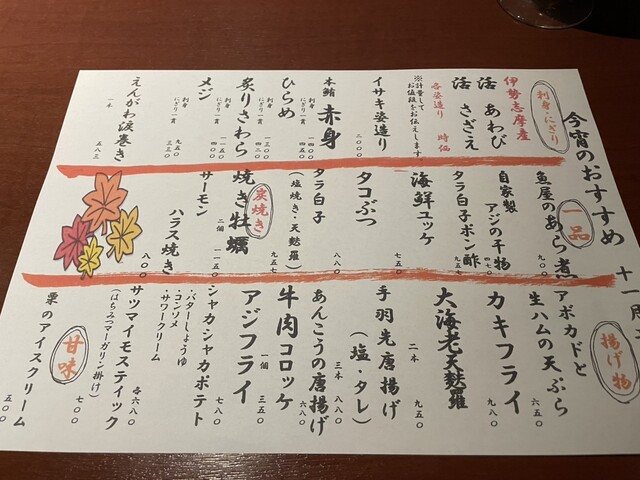 今宵のおすすめ
十一月
刺身・にぎり
伊勢志摩産
活 あわび
活 さざえ
各姿造り 時価
※計量して
お値段をお伝えします
イサキ姿造り 二〇〇〇
本鮪 赤身
刺身 一四〇〇
にぎり一貫 四八〇
ひらめ
刺身 一三〇〇
にぎり一貫 四二〇
炙りさわら
刺身
にぎり一貫
メジ
刺身 九五〇
にぎり一貫 三三〇
えんがわ涙巻き
一本 五八三
一品
魚屋のあら煮 九〇〇
自家製
アジの干物
タラ白子ポン酢 九五七
海鮮ユッケ 七五〇
タコぶつ 八八〇
タラ白子
(塩焼き・天麩羅) 九五七
炭焼き
焼き牡蠣
二個 一一五〇
サーモン
ハラス焼き 八〇〇
揚げ物
アボカドと
生ハムの天ぷら 六五〇
カキフライ 九八〇
大海老天麩羅
二本 九五〇
手羽先唐揚げ
(塩・タレ)
三本 八八〇
あんこうの唐揚げ 六八〇
牛肉コロッケ
アジフライ
一個 三五〇
シャカシャカポテト 七八〇
・バターしょうゆ
・コンソメ
・サワークリーム
サツマイモスティック 各六八〇
(はちみつマーガリン掛け) 七〇〇
甘味
栗のアイスクリーム 五〇〇